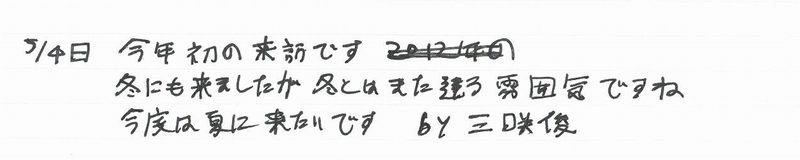 5/4日 今年初の来訪です
冬にも来ましたが 冬とはまた違う雰囲気ですね
今度は夏に来たいです by 三咲俊